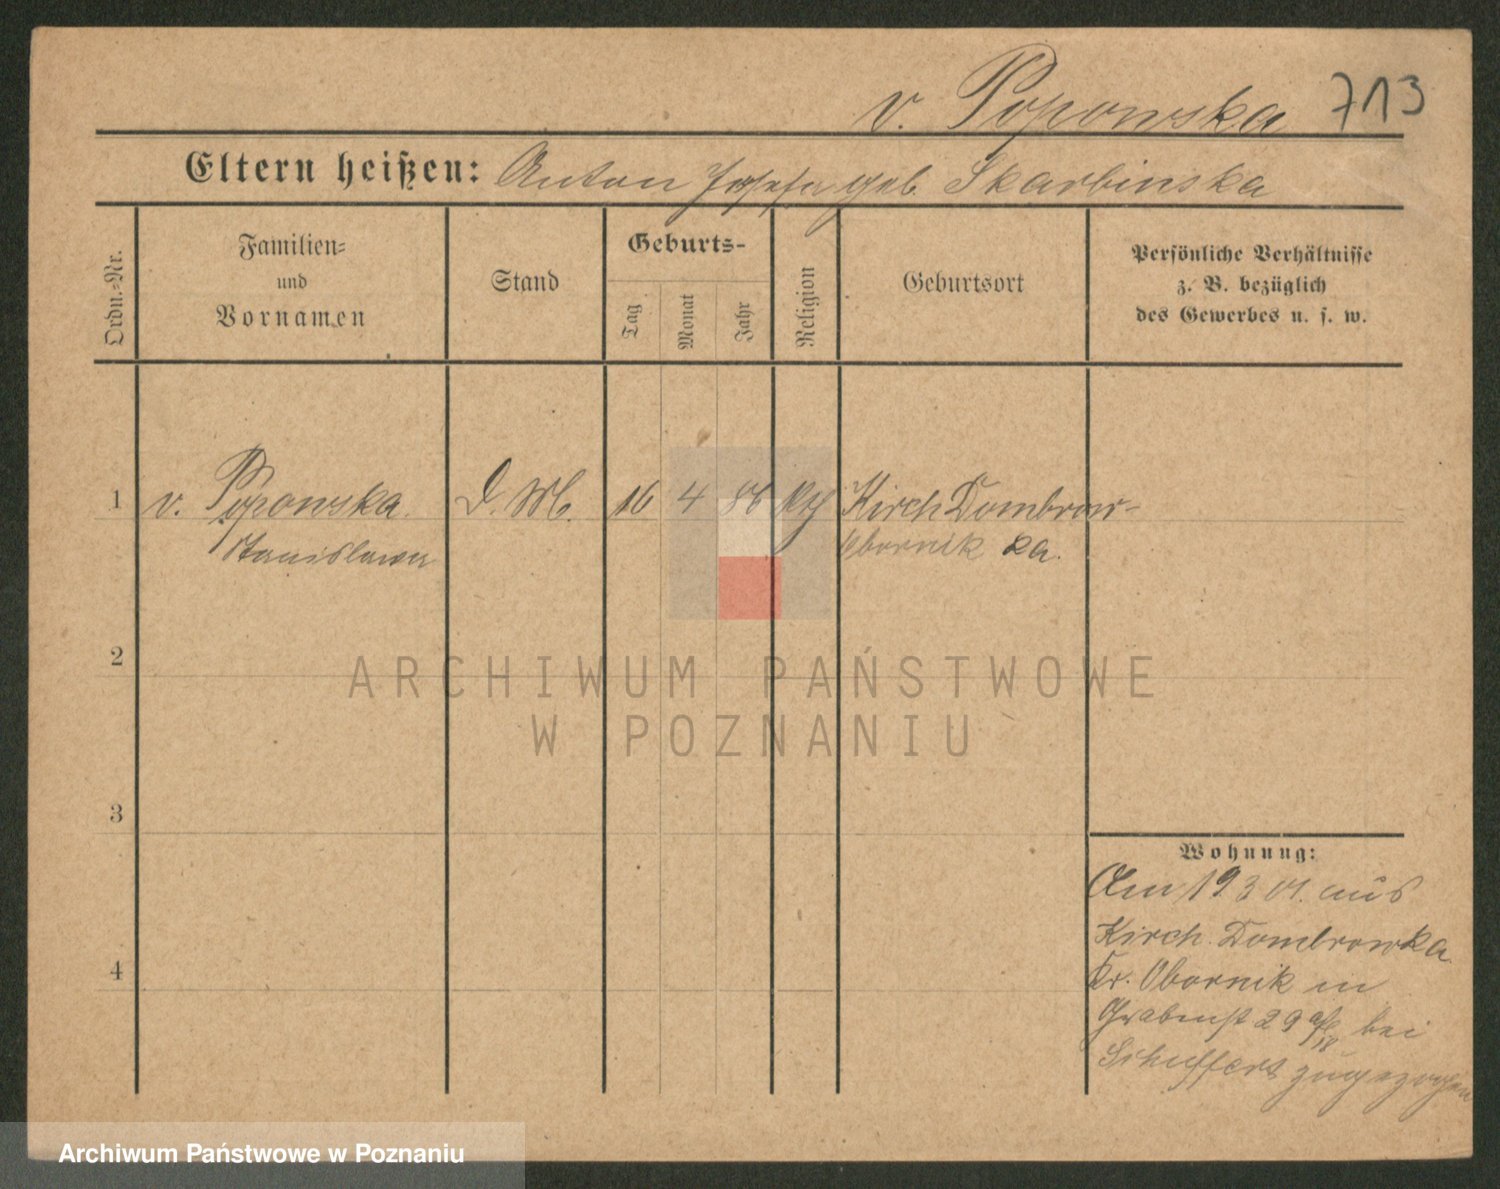 v. Popowska 713
Eltern heißen: Anton Josefa geb. Skarbinska
Ordn.-Nr.
Familien-
und
Vornamen
Stand
Geburts-
Tag
Monat
Jahr
Religion
Geburtsort
Persönliche Verhältnisse
z. B. bezüglich
des Gewerbes u. s. w.
1 v. Popowska D. M. 16 4 86 kth Kirch Dombrow-
Stanislawa Obornik ka.
2
3
4
Wohnung:
Am 19 3 01. aus
Kirch. Dombrowka
Kr. Obornik in
Grabenst 29 bei
zugezogen
ARCHIWUM PAŃSTWOWE
W POZNANIU
Archiwum Państwowe w Poznaniu